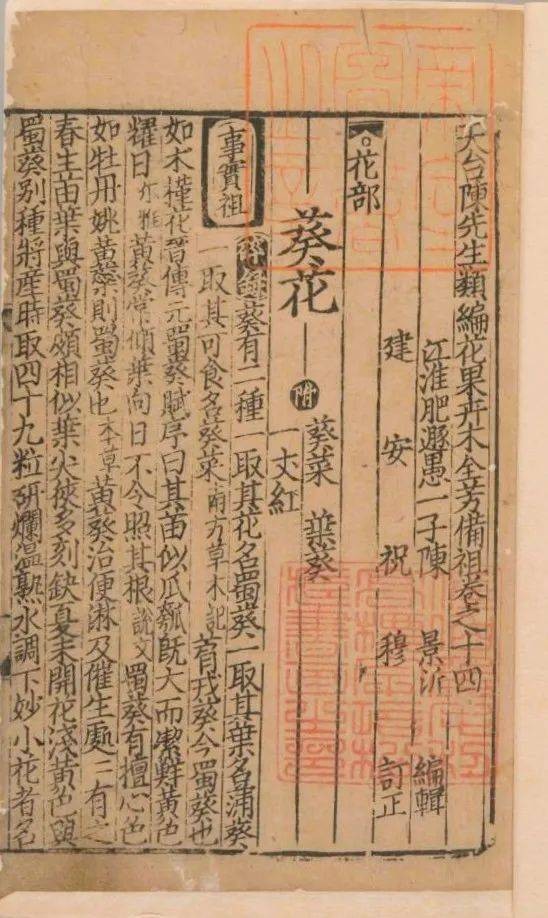 天台陳先生類編花果卉木全芳備祖卷之十四
江淮肥遯愚一子陳 景沂 編輯
建安 祝 穆 訂正
花部
葵花 附 葵菜 葉葵
一丈紅
事實祖
碎錄 葵有二種一取其花名蜀葵一取其葉名蒲葵
一取其可食名葵菜 南方草木記 菺戎葵今蜀葵也
如木槿花 晉傅元蜀葵賦序曰其苗似瓜瓠既大而潔鮮黃色
耀日 尔雅 黃葵常傾葉向日不令照其根 說文 蜀葵有擅心色
如牡丹姚黃蘂則蜀葵也 本草 黃葵治便淋及催生處二有之
春生苗葉與蜀葵頗相似葉尖狹多刻缺夏末開花淺黃色與
蜀葵別種將產時取四十九粒研爛溫熟水調下妙小花者名